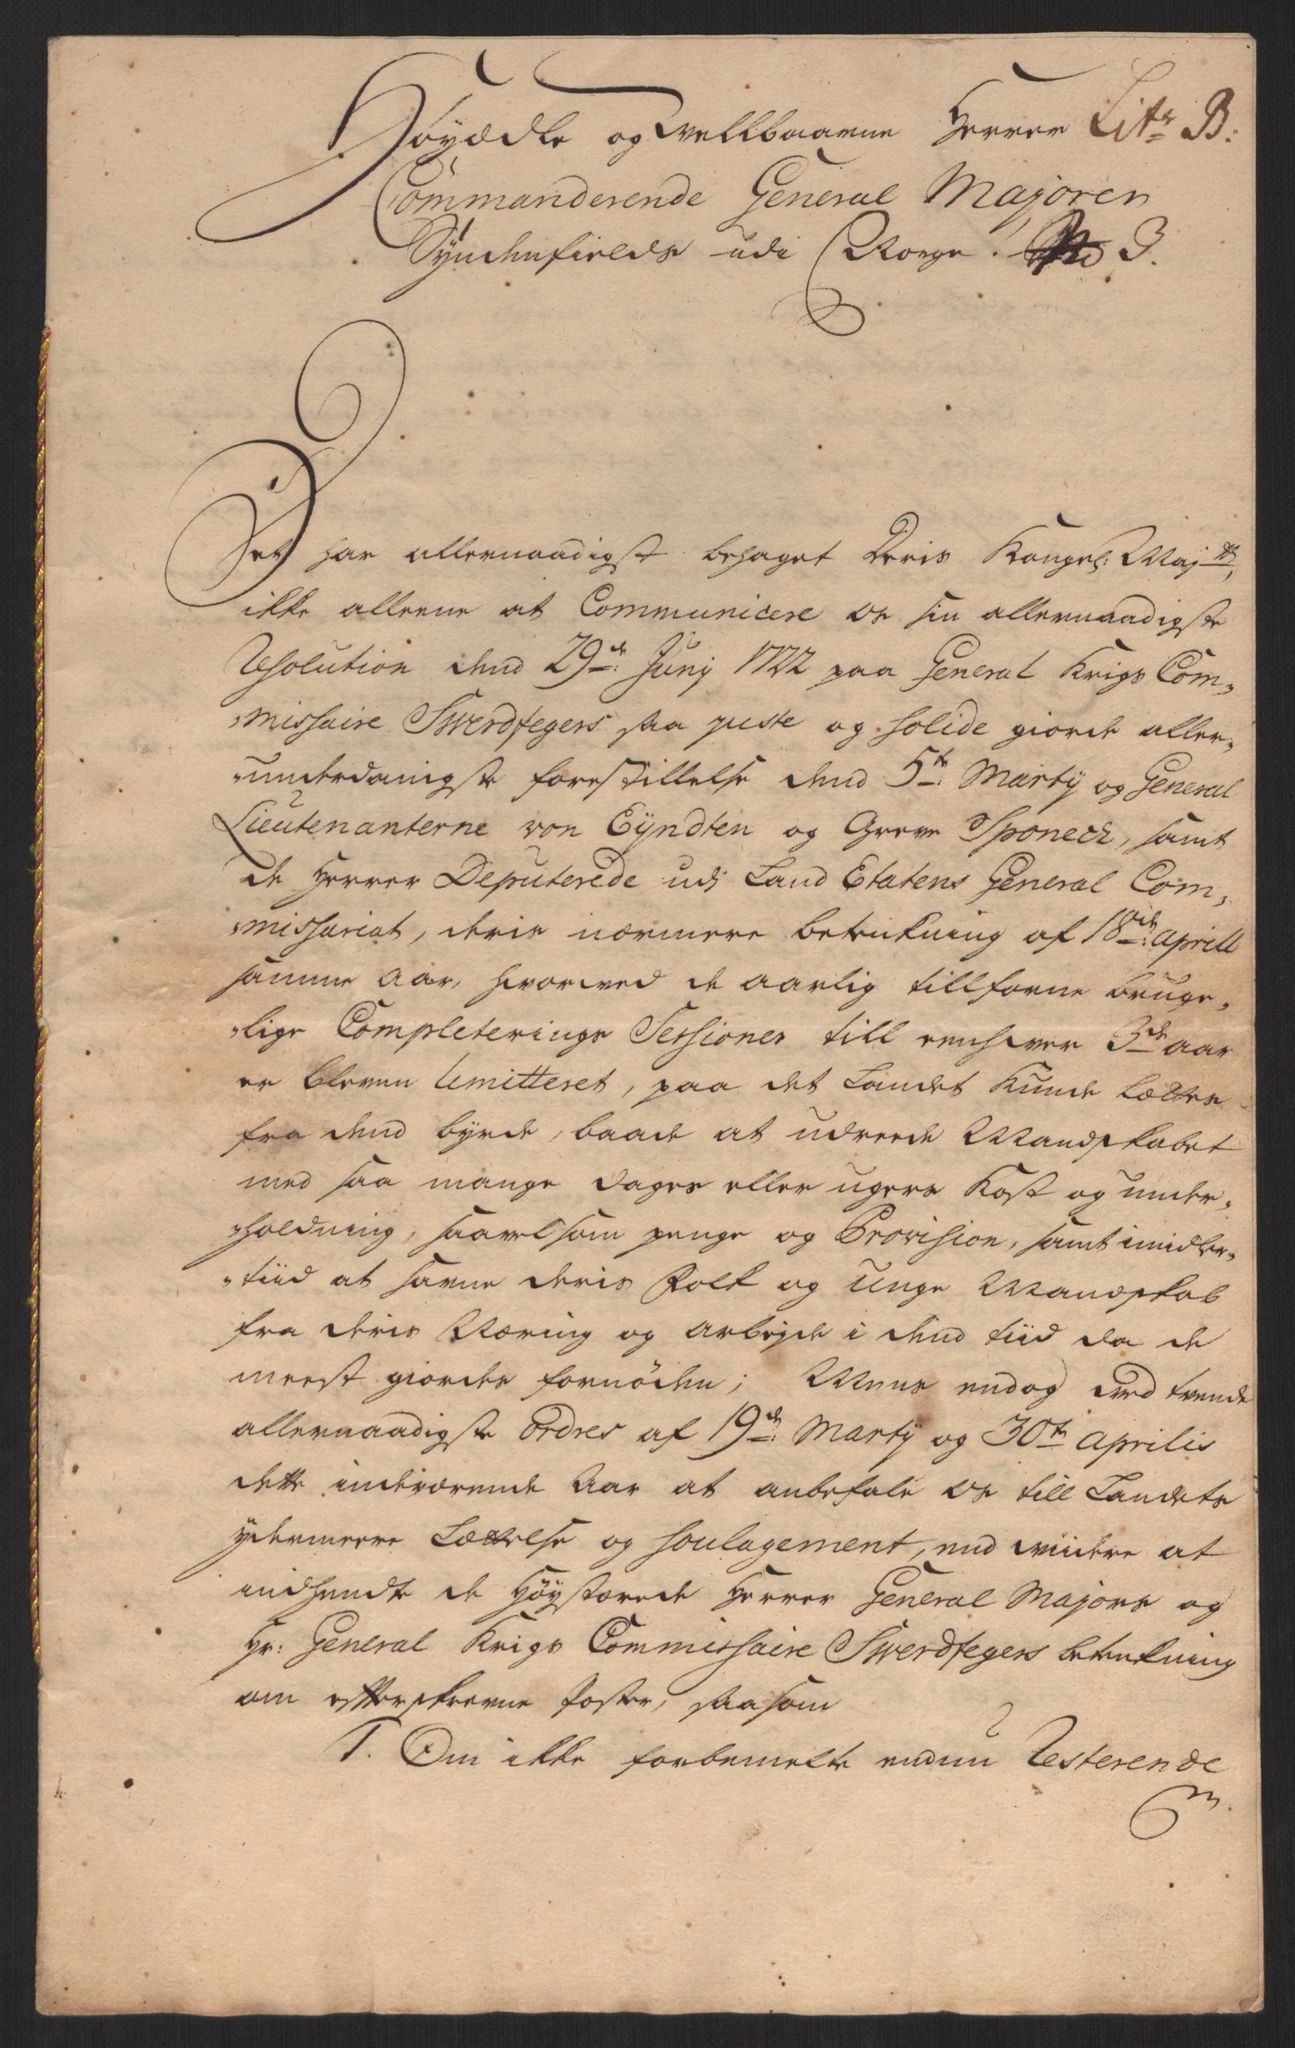 Høyædle og velbaarne Herrer Litr B:
Commanderende General Majoren
Syndenfields udi Norge. No 3.
Det har allernaadigst behaget Deris Kongel: Majtt,
ikke alleene at Communicere os sin allernaadigste
Resolution dend 29de Junij 1722 paa General Krigs Com-
missaire Swerdfegers saa juste og solide giorde aller-
underdanigste forestillelse dend 5te Martij og General
Lieutenanterne von Eÿndten og Greve Sponeck, samt
de Herrer Deputerede udj Land Etatens General Com-
missariat, deris nærmere betenkning af 18de Aprill
samme Aar, hvorved de aarlig tillforne bruge-
lige Completerings Sessioner till enhver 3de aar
er bleven limitteret, paa det Landet kunde lættes
fra dend byrde, baade at udreede Mandskabet
med saa mange dages eller ugers Kost og under-
holdning, saavelsom penge og Provision, samt imidler-
tiid at savne deris Folk og unge Mandskab
fra deris Næring og arbejde i dend tiid da de
meest giordes fornøden; Mens endog ved tvende
allernaadigste ordres af 19de Martij og 30te Aprilis
dette indeværende Aar at anbefale os till Landets
ydermeere Lættelse og soulagement, end viidere at
indhendte de Høystærede Herrer General Majors og
Hr: General Krigs Commissaire Swerdfegers betenkning
om efterskrevne Poster, saasom
1. Om ikke forbemelte endnu Resterende